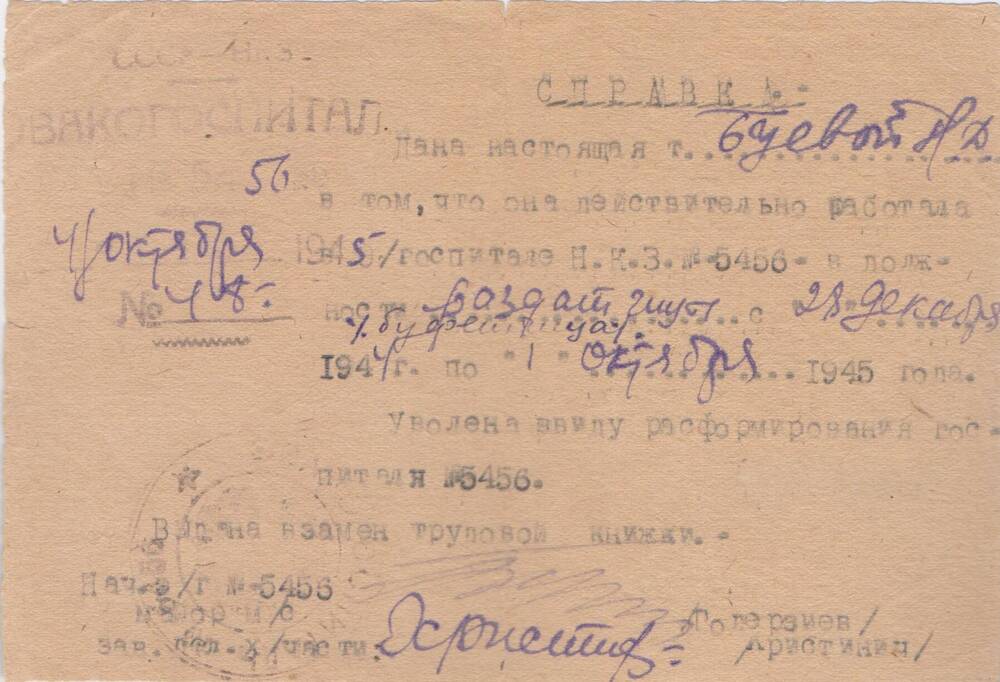 СССР - Н.К.З.
ЭВАКОГОСПИТАЛ
56
4/ октября 1945
№ 48-
СПРАВКА:-
Дана настоящая т...Буевой Н Д
в том, что она действительно работала
в э/госпитале Н.К.З.№-5456- в долж-
ности раздатчицы с 28 декабря
/буфетчица/
1944 г. по "1" октября 1945 года.
Уволена ввиду расформирования гос-
питаля №5456.
Выдана взамен трудовой книжки.-
Нач.э/г №-5456
майор м/с /Годерзиев/
зав. дел.х/части: /Аристинин/